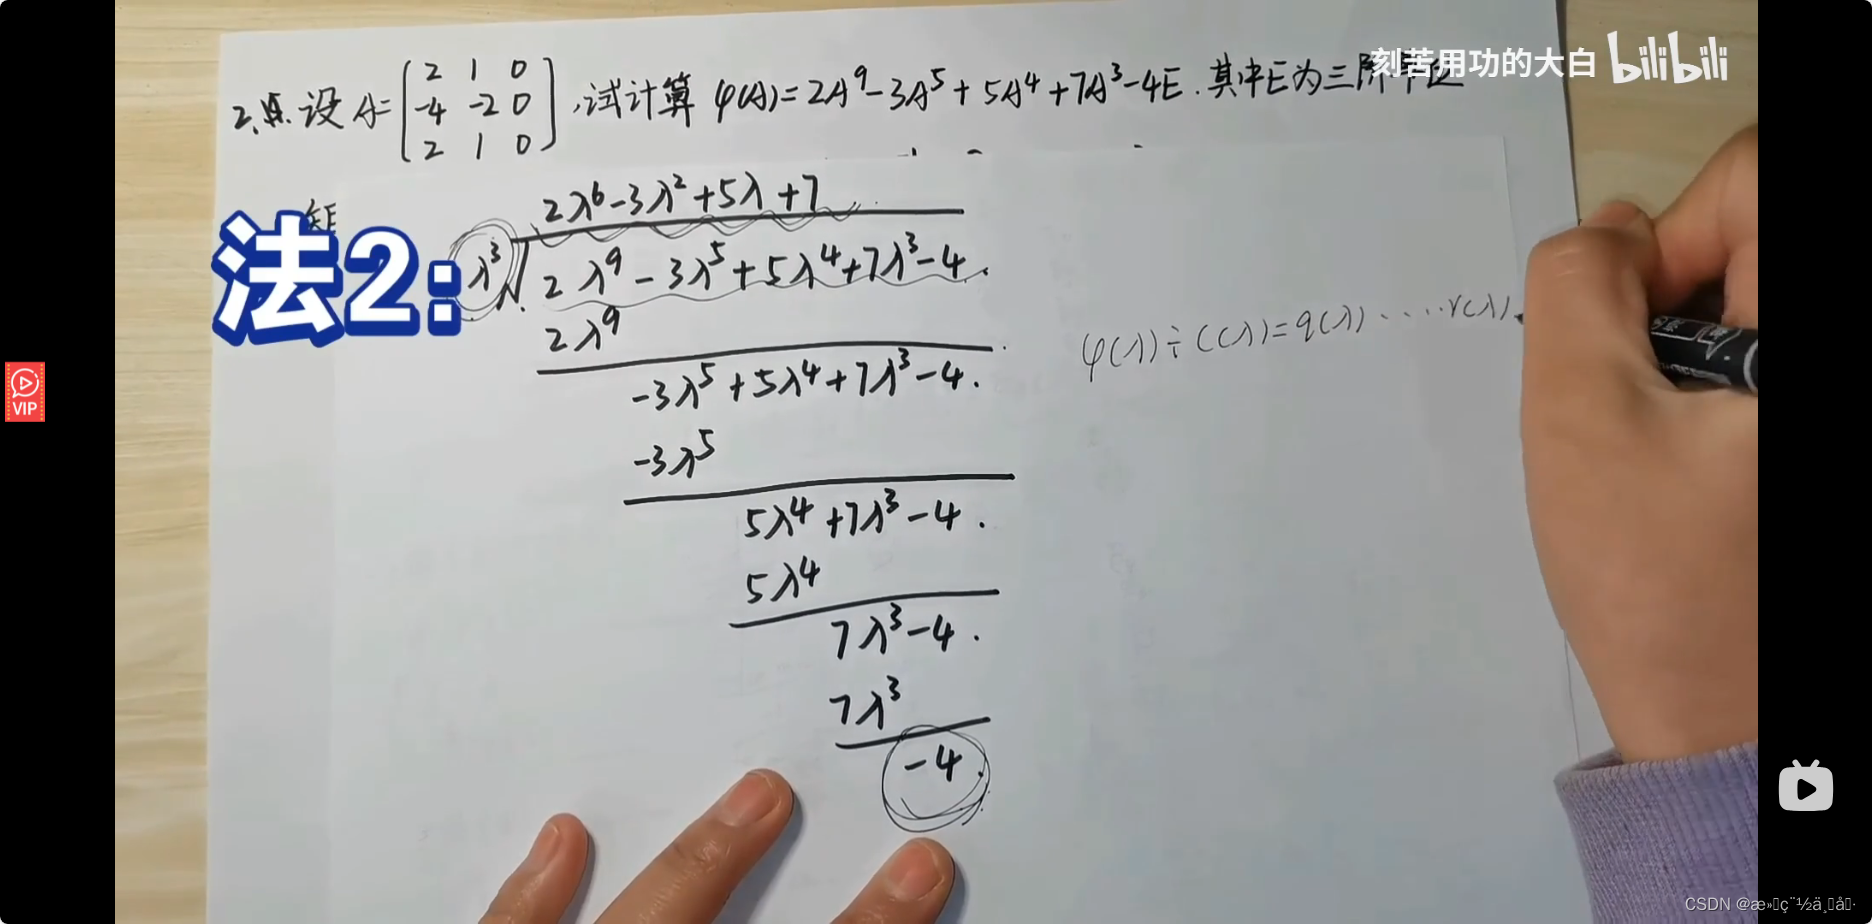 刻苦用功的大白 bilibili
2. 设 A=[2 1 0; -4 -2 0; 2 1 0], 试计算 φ(A)=2A⁹-3A⁵+5A⁴+7A³-4E. 其中E为三阶单位
矩
法2:
2λ⁶-3λ²+5λ+7
λ³ 2λ⁹-3λ⁵+5λ⁴+7λ³-4.
2λ⁹
φ(λ)÷C(λ)=q(λ)·····r(λ)
-3λ⁵+5λ⁴+7λ³-4.
-3λ⁵
5λ⁴+7λ³-4.
5λ⁴
7λ³-4.
7λ³
-4.
VIP
CSDN